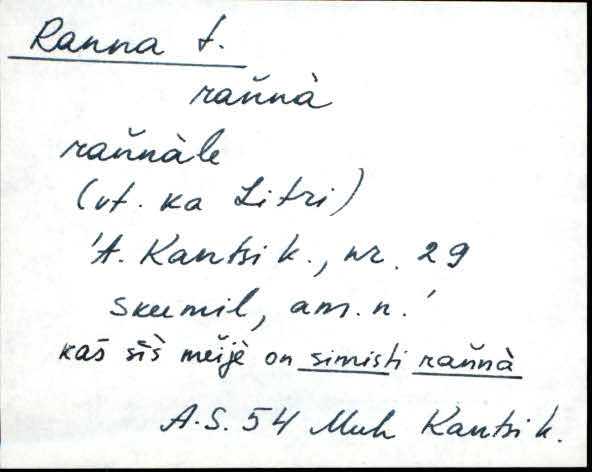 Ranna t.
rañnà
rañnàle
(vt. ka Litri)
'A. Kantsi k., nr. 29
Skumil, am. n.'
kaš sīs meijè on simisti rañnà
A.S. 54 Muh Kantsi k.